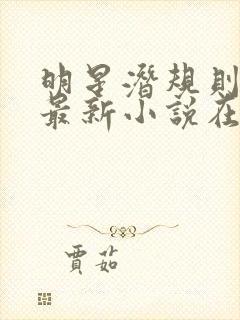 明星潛規則
最新小說在
賈茹